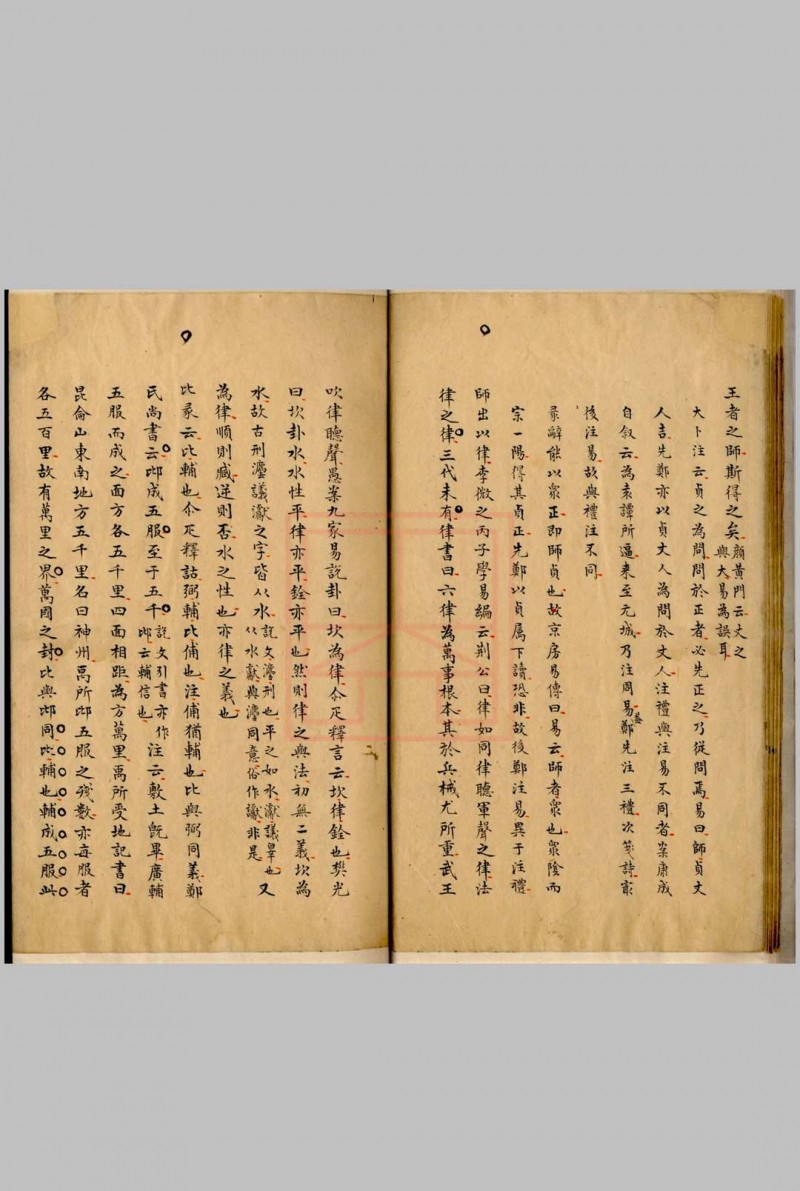 王者之師斯得之矣顏黃門云丈之與大易為誤耳
大卜注云貞之為問問於正者必先正之乃從問焉易曰師貞丈
人吉先鄭亦以貞丈人為問於丈人注禮與注易不同者案康成
自叙云為袁譚所逼來至元城乃注周易蓋鄭先注三禮次箋詩㝡
後注易故與禮注不同
彖辭能以眾正即師貞也故京房易傳曰易云師者眾也眾陰而
宗一陽得其貞正先鄭以貞屬下讀恐非故後鄭注易異于注禮
師出以律李微之丙子學易編云荆公曰律如同律聽軍聲之律法
律之律三代未有律書曰六律為萬事根本其於兵械尤所重武王
吹律聽聲愚案九家易説卦曰坎為律尒疋釋言云坎律銓也樊光
曰坎卦水水性平律亦平銓亦平也然則律之與法初無二義坎為
水故古刑灋議讞之字皆从水説文灋刑也平之如水讞議辠也从水獻與灋同意俗作讞非是又
為律順則臧逆則否水之性也亦律之義也
比彖云比輔也尒疋釋詁弼輔比俌也注俌猶輔也比與弼同義鄭
氏尚書云邶成五服至于五千説文引書亦作邶云輔信也注云敷土既畢廣輔
五服而成之面方各五千里四面相距為方萬里禹所受地記書曰
昆侖山東南地方五千里名曰神州禹所邶五服之殘數亦每服者
各五百里故有萬里之界萬國之封比與邶同比輔也輔成五服此